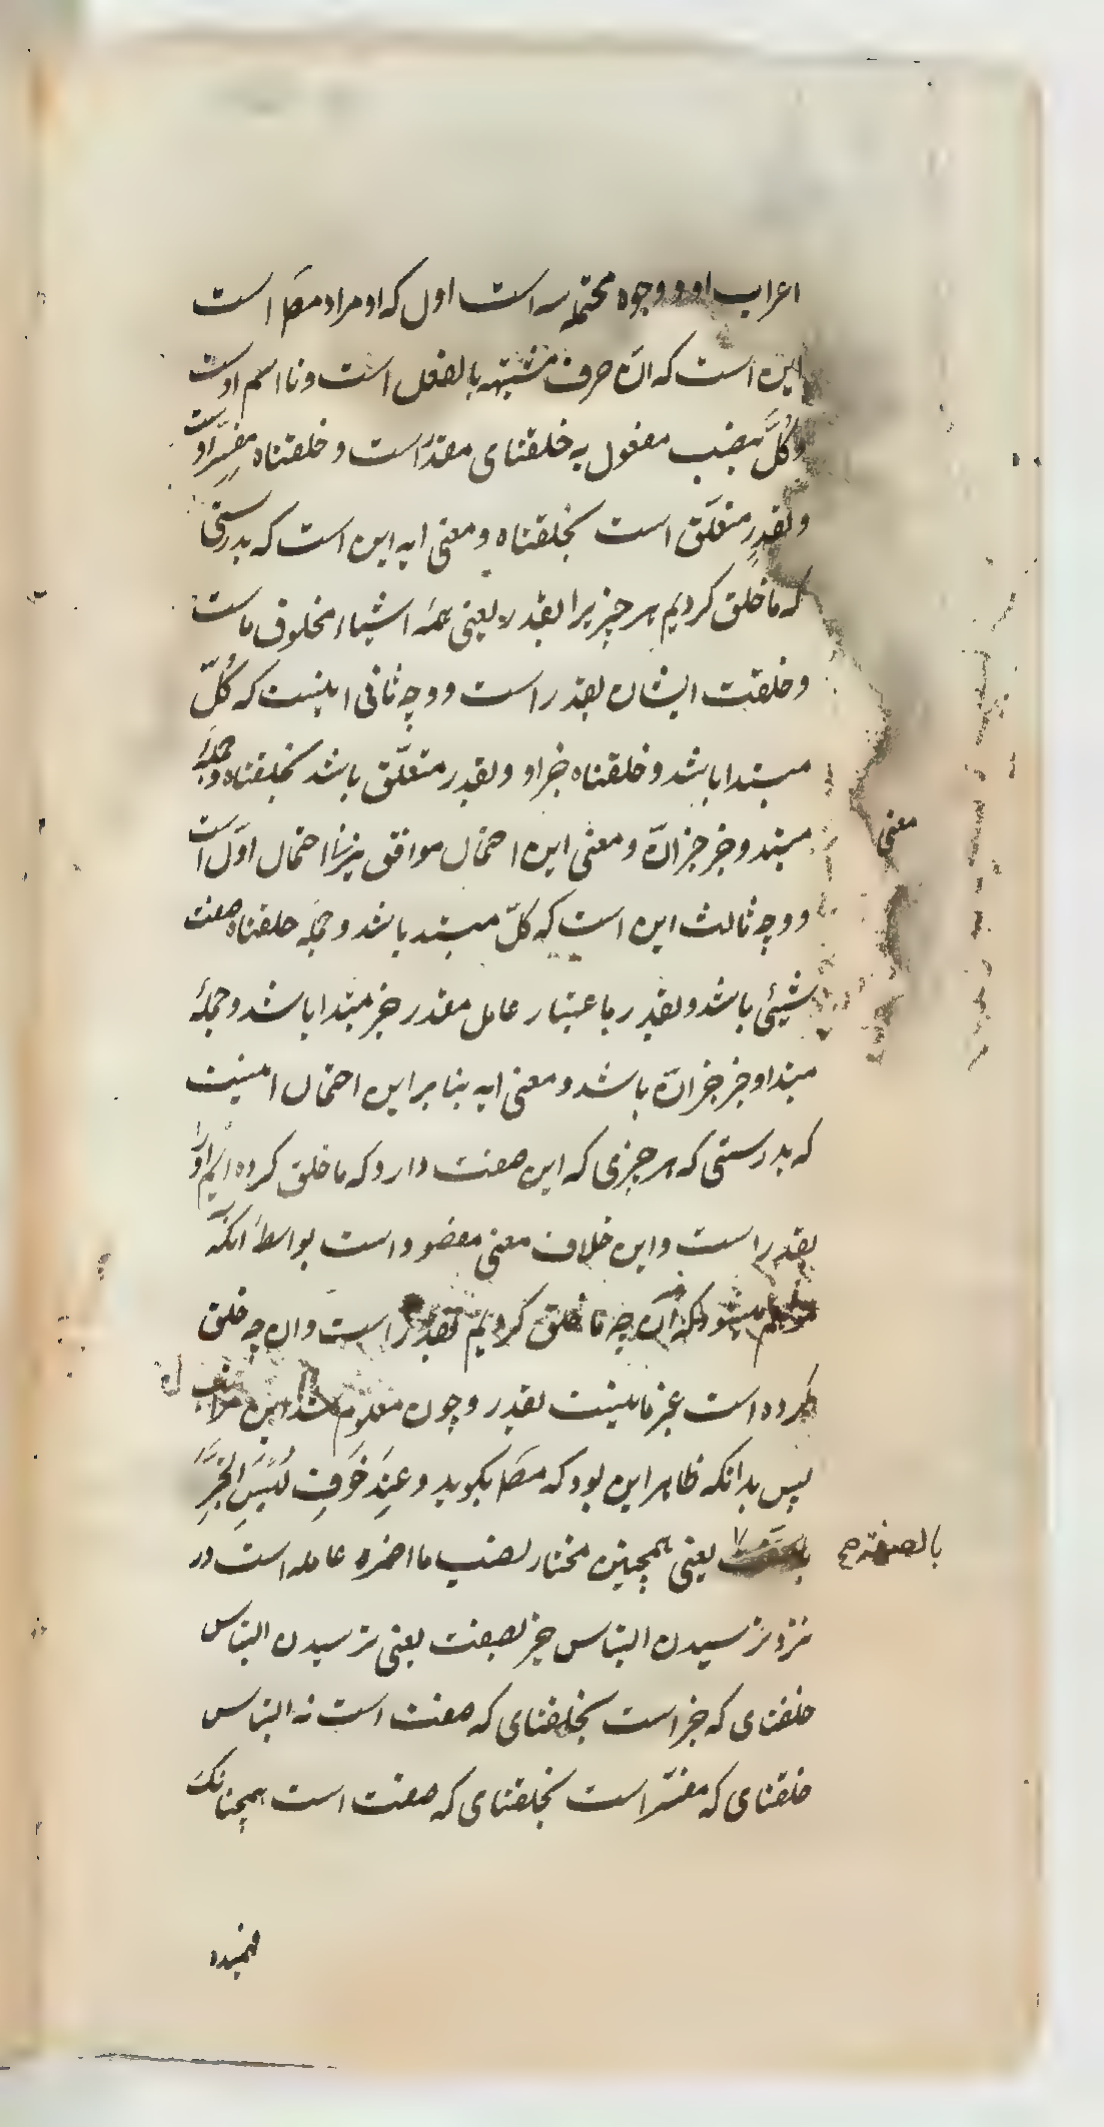 اعراب او و وجوه محتمله سه است اول که او مراد مصَ است
این است که انّ حرف مشبّهه بالفعل است و نا اسم اوست
و کُلَّ بنصب مفعول به خلقنای مقدّر است و خلقناه مفسِّر اوست
و بقدرٍ متعلّق است بخلقناه و معنی ایه این است که بدرستی
که ما خلق کردیم هر چیز یرا بقدر یعنی همهٔ اشیاء مخلوق ماست
و خلقت ایشان بقدر است و وجه ثانی اینست که کُلّ
مبتدا باشد و خلقناه خبر او و بقدر متعلّق باشد بخلقناه و جملهٔ
مبتد و خبر خبر انّ و معنی این احتمال موافق نیز با احتمال اوّل است
معنی
و وجه ثالث این است که کلّ مبتد باشد و جمله خلقناه صفت
شیئی باشد و بقدر باعتبار عامل مقدر خبر مبتدا باشد و جملهٔ
مبتدا و خبر خبر انّ باشد و معنی ایه بنا بر این احتمال اینست
که بدرستی که هر چیزی که این صفت دارد که ما خلق کرده ایم او را
بقدر است و این خلاف معنی مقصود است بواسطهٔ انکه
میشود که آن چه ما خلق کردیم بقدر است و ان چه خلق
کرده است غیر ما نیست بقدر و چون معلوم شد این
پس بدانکه ظاهر این بود که مصَ بکوید و عِندَ خَوفِ لَبسِ الخَبَرِ
بالصفة صح
یعنی همچنین مختار نصب ما اضمره عامله است در
نزد ترسیدن التباس خبر بصفت یعنی ترسیدن التباس
خلقنای که خبر است بخلقنای که صفت است نه التباس
خلقنای که مفسّر است بخلقنای که صفت است همچنانکه